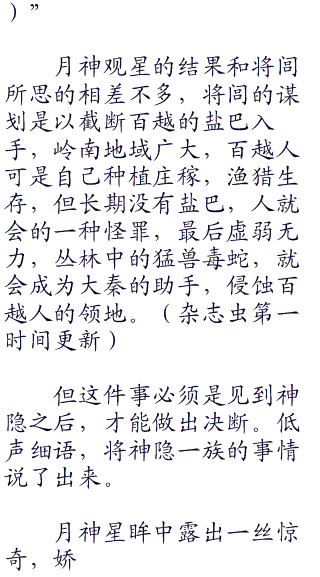 ）”
月神观星的结果和将闾
所思的相差不多，将闾的谋
划是以截断百越的盐巴入
手，岭南地域广大，百越人
可是自己种植庄稼，渔猎生
存，但长期没有盐巴，人就
会的一种怪罪，最后虚弱无
力，丛林中的猛兽毒蛇，就
会成为大秦的助手，侵蚀百
越人的领地。（杂志虫第一
时间更新）
但这件事必须是见到神
隐之后，才能做出决断。低
声细语，将神隐一族的事情
说了出来。
月神星眸中露出一丝惊
奇，娇